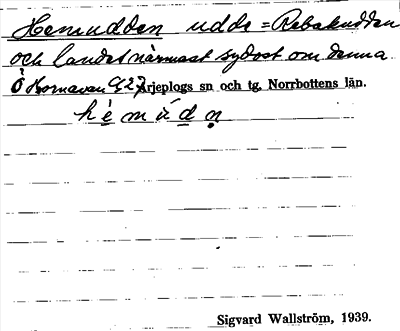 Hemudden udde = Rebakudden
och landet närmast sydost om denna
Ö Hornavan Arjeplogs sn och tg. Norrbottens län.
hèmúdn̥
Sigvard Wallström, 1939.